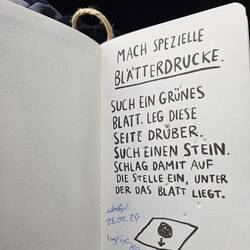 MACH SPEZIELLE
BLÄTTERDRUCKE.
SUCH EIN GRÜNES
BLATT. LEG DIESE
SEITE DRÜBER.
SUCH EINEN STEIN.
SCHLAG DAMIT AUF
DIE STELLE EIN, UNTER
DER DAS BLATT LIEGT.